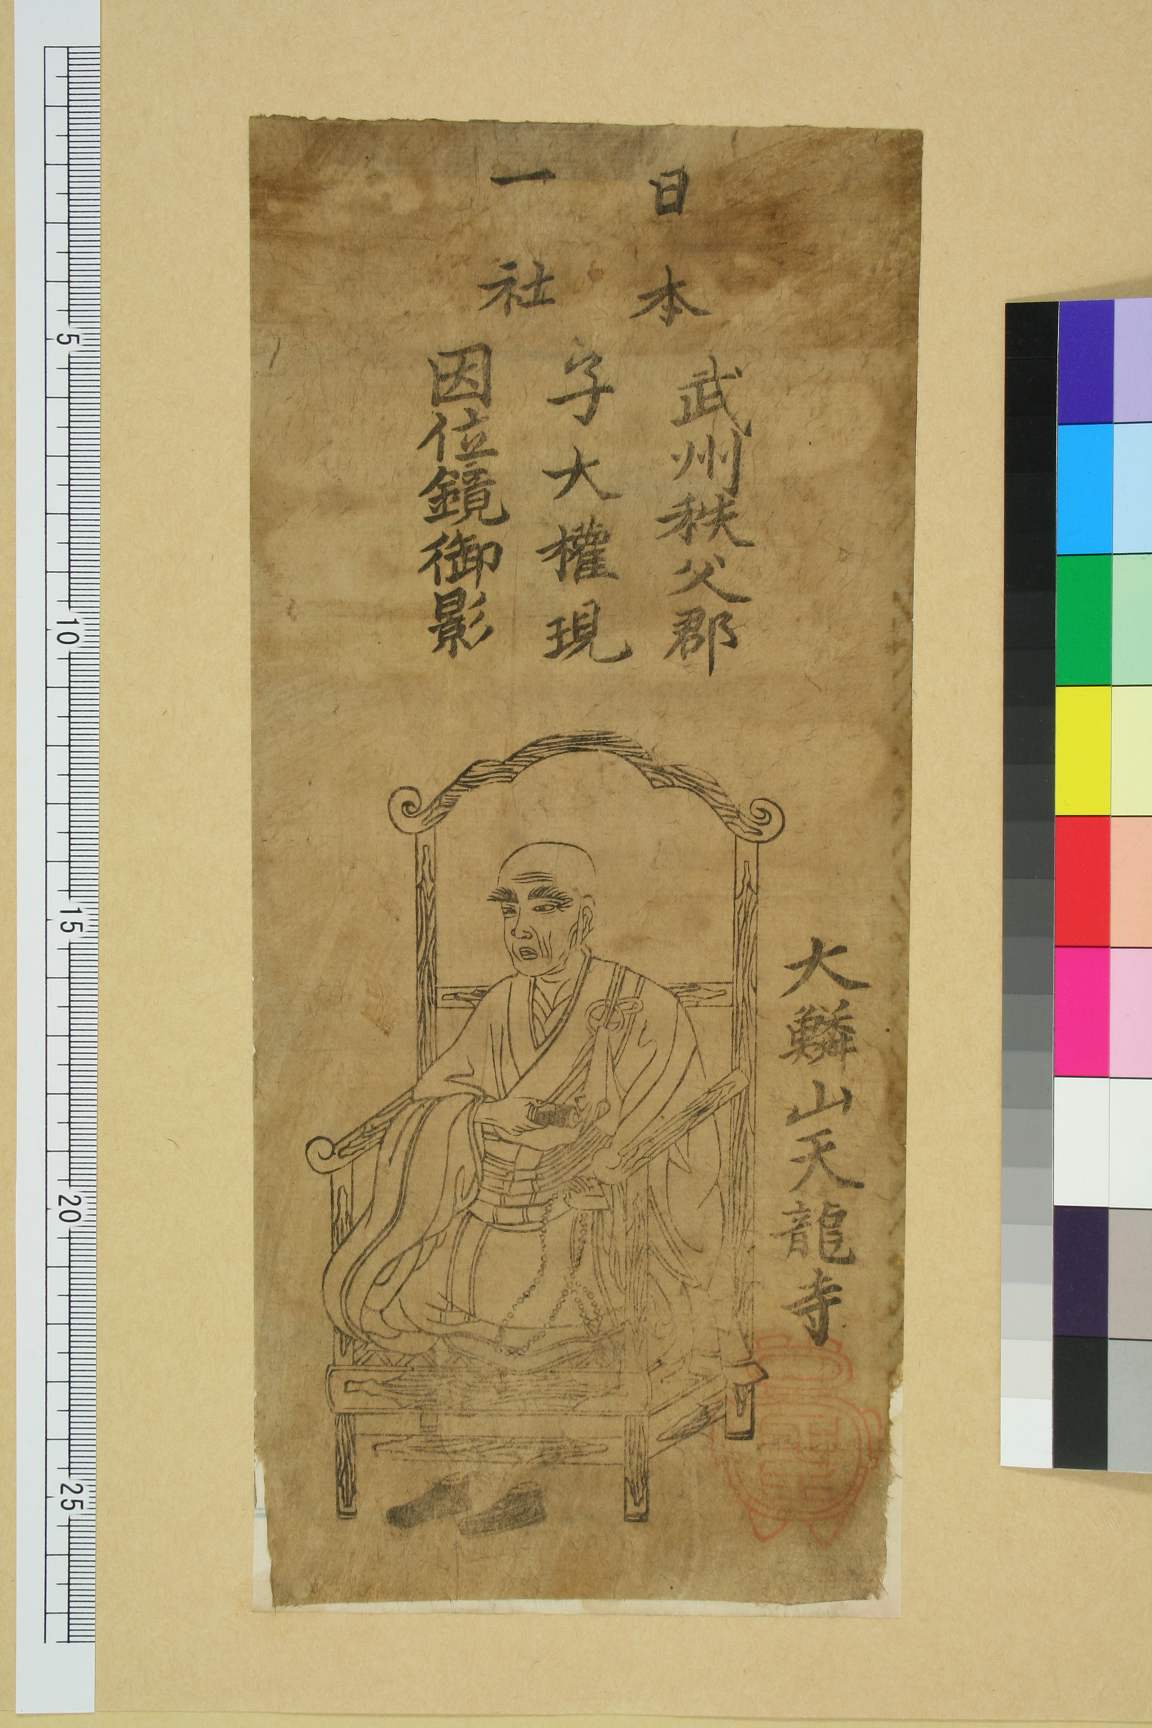 日本
一社
武州秩父郡
子大權現
因位鏡御影
大鱗山天龍寺
5
10
15
20
25